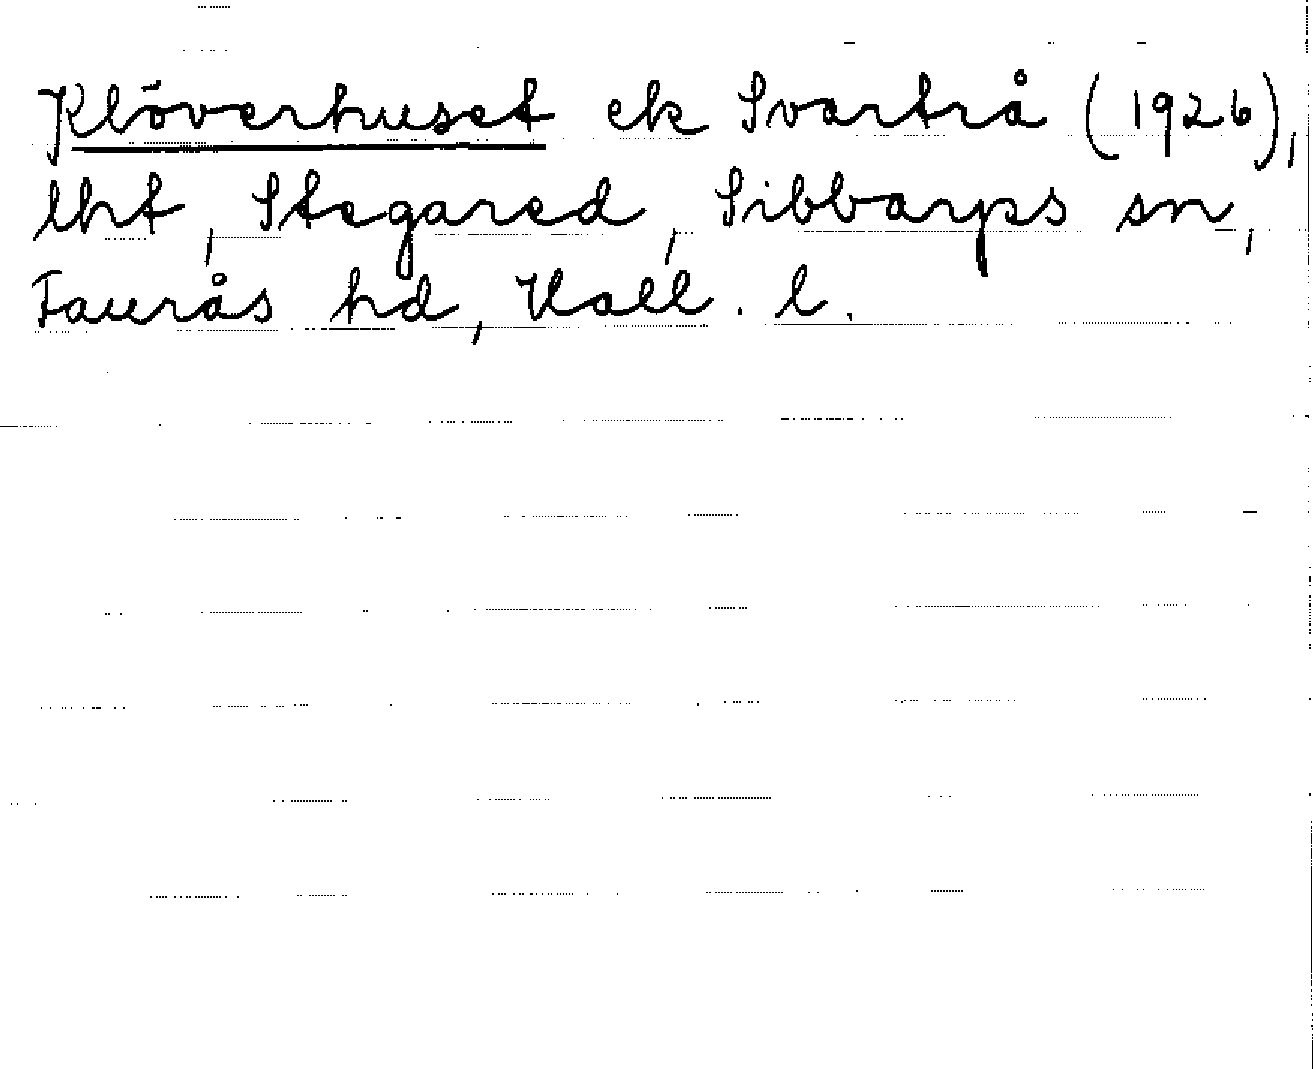 Klöverhuset ek Svartrå (1926),
lht, Stegared, Sibbarps sn,
Faurås hd, Hall. l.